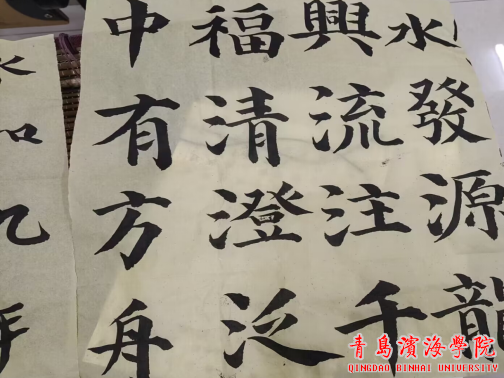 水發源龍
興流注千
福清澄泛
中有方舟
年
青島濱海學院
QINGDAO BINHAI UNIVERSITY